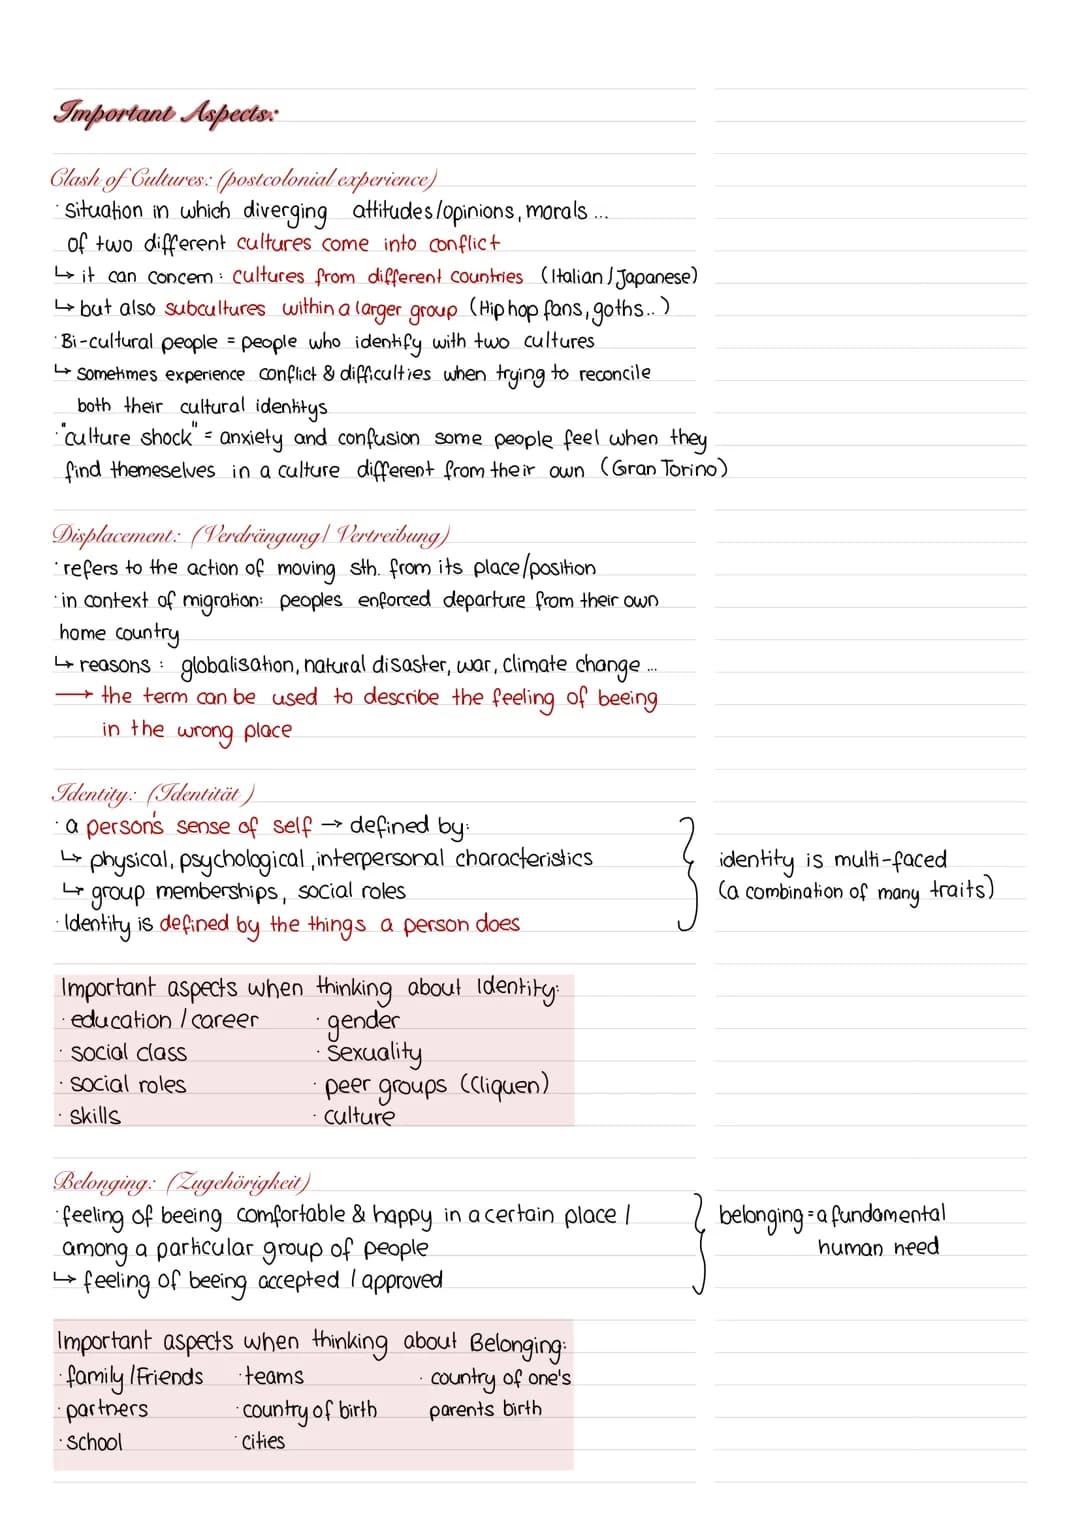 Important Aspects:
Clash of Cultures: (postcolonial experience)
· Situation in which diverging attitudes/opinions, morals ...
of two different cultures come into conflict
↳ it can concern: cultures from different countries (Italian/Japanese)
↳ but also subcultures within a larger group (Hip hop fans, goths..)
· Bi-cultural people = people who identify with two cultures
↳ sometimes experience conflict & difficulties when trying to reconcile
both their cultural identitys
· "culture shock" = anxiety and confusion some people feel when they
find themeselves in a culture different from their own (Gran Torino)
Displacement: (Verdrängung/ Vertreibung)
· refers to the action of moving sth. from its place/position
· in context of migration: peoples enforced departure from their own
home country
↳ reasons: globalisation, natural disaster, war, climate change ...
→ the term can be used to describe the feeling of beeing
in the wrong place
Identity: (Identität)
· a person's sense of self → defined by:
↳ physical, psychological, interpersonal characteristics
↳ group memberships, social roles
· Identity is defined by the things a person does
identity is multi-faced
(a combination of many traits)
Important aspects when thinking about Identity:
· education / career · gender
· social class · sexuality
· social roles · peer groups (Cliquen)
· skills · culture
Belonging: (Zugehörigkeit)
· feeling of beeing comfortable & happy in a certain place /
among a particular group of people
↳ feeling of beeing accepted / approved
belonging = a fundamental
human need
Important aspects when thinking about Belonging:
· family/Friends · teams · country of one's
· partners · country of birth parents birth
· school · cities